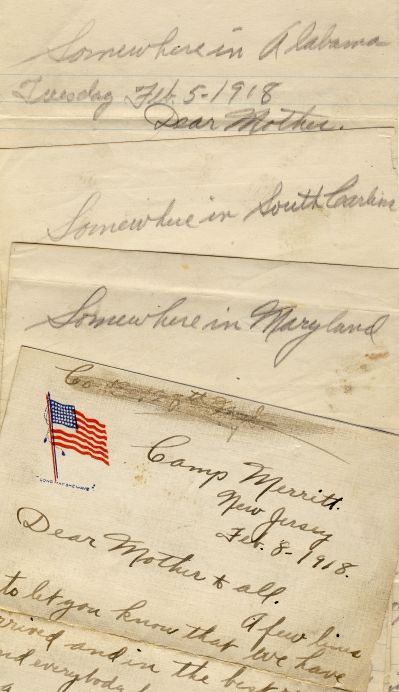 Somewhere in Alabama
Tuesday Feb. 5-1918
Dear Mother.
Somewhere in South Carlina
Somewhere in Maryland
Co.
"LONG MAY SHE WAVE"
Camp Merritt.
New Jersey
Feb. 8-1918.
Dear Mother & all.
A few lines
to let you know that we have
rrived and in the best
nd everybody